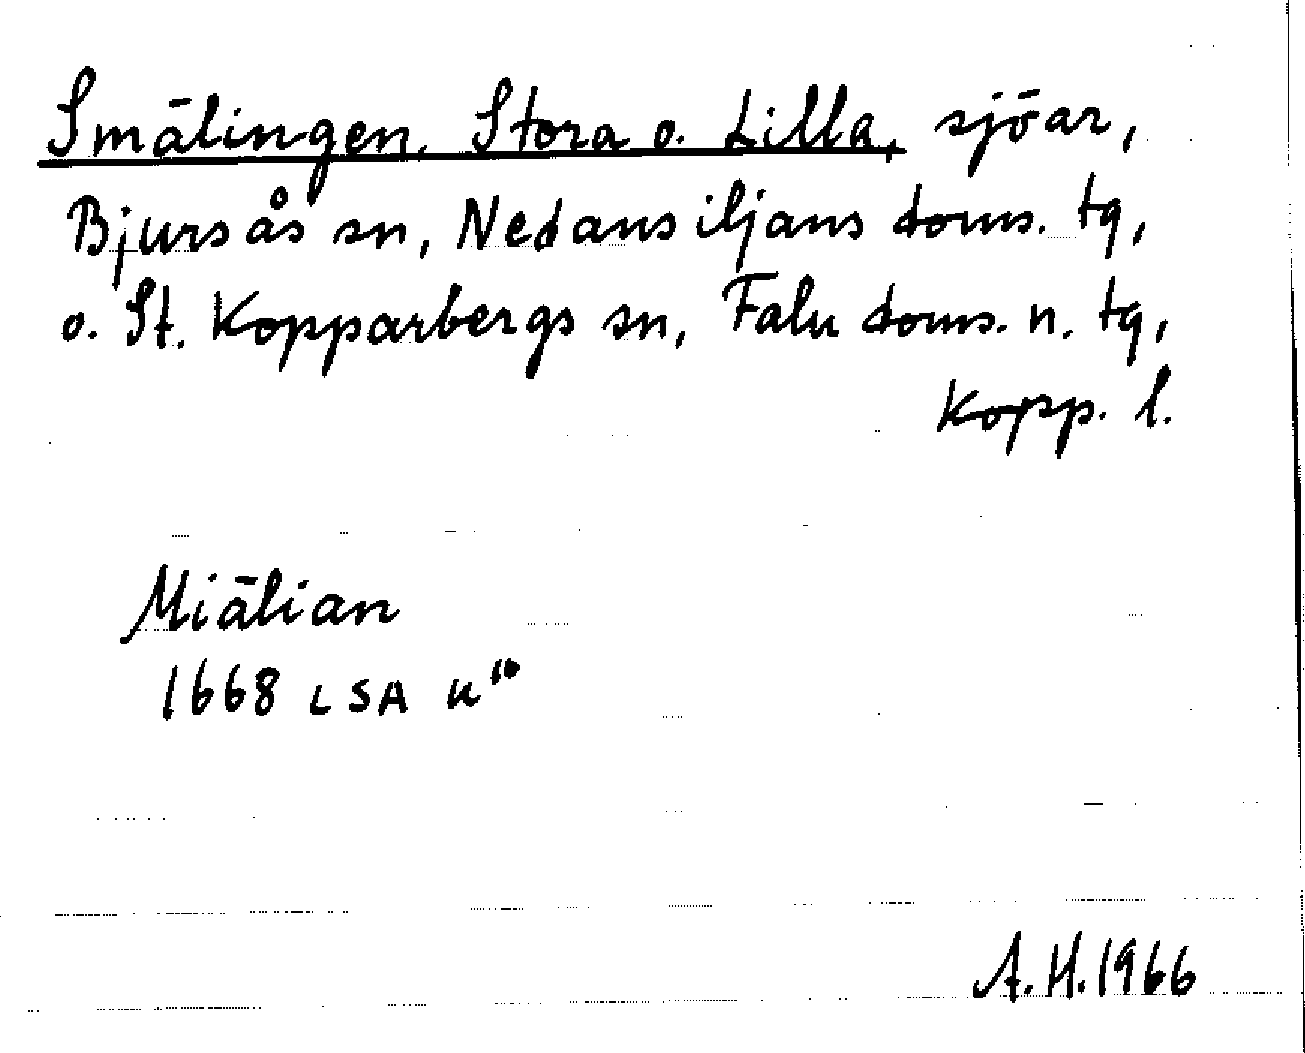 Smälingen, Stora o. Lilla, sjöar,
Bjursås sn, Nedansiljans doms. tg,
o. St. Kopparbergs sn, Falu doms. n. tg,
Kopp. l.
Miälian
1668 LSA u¹⁰
A.H. 1966